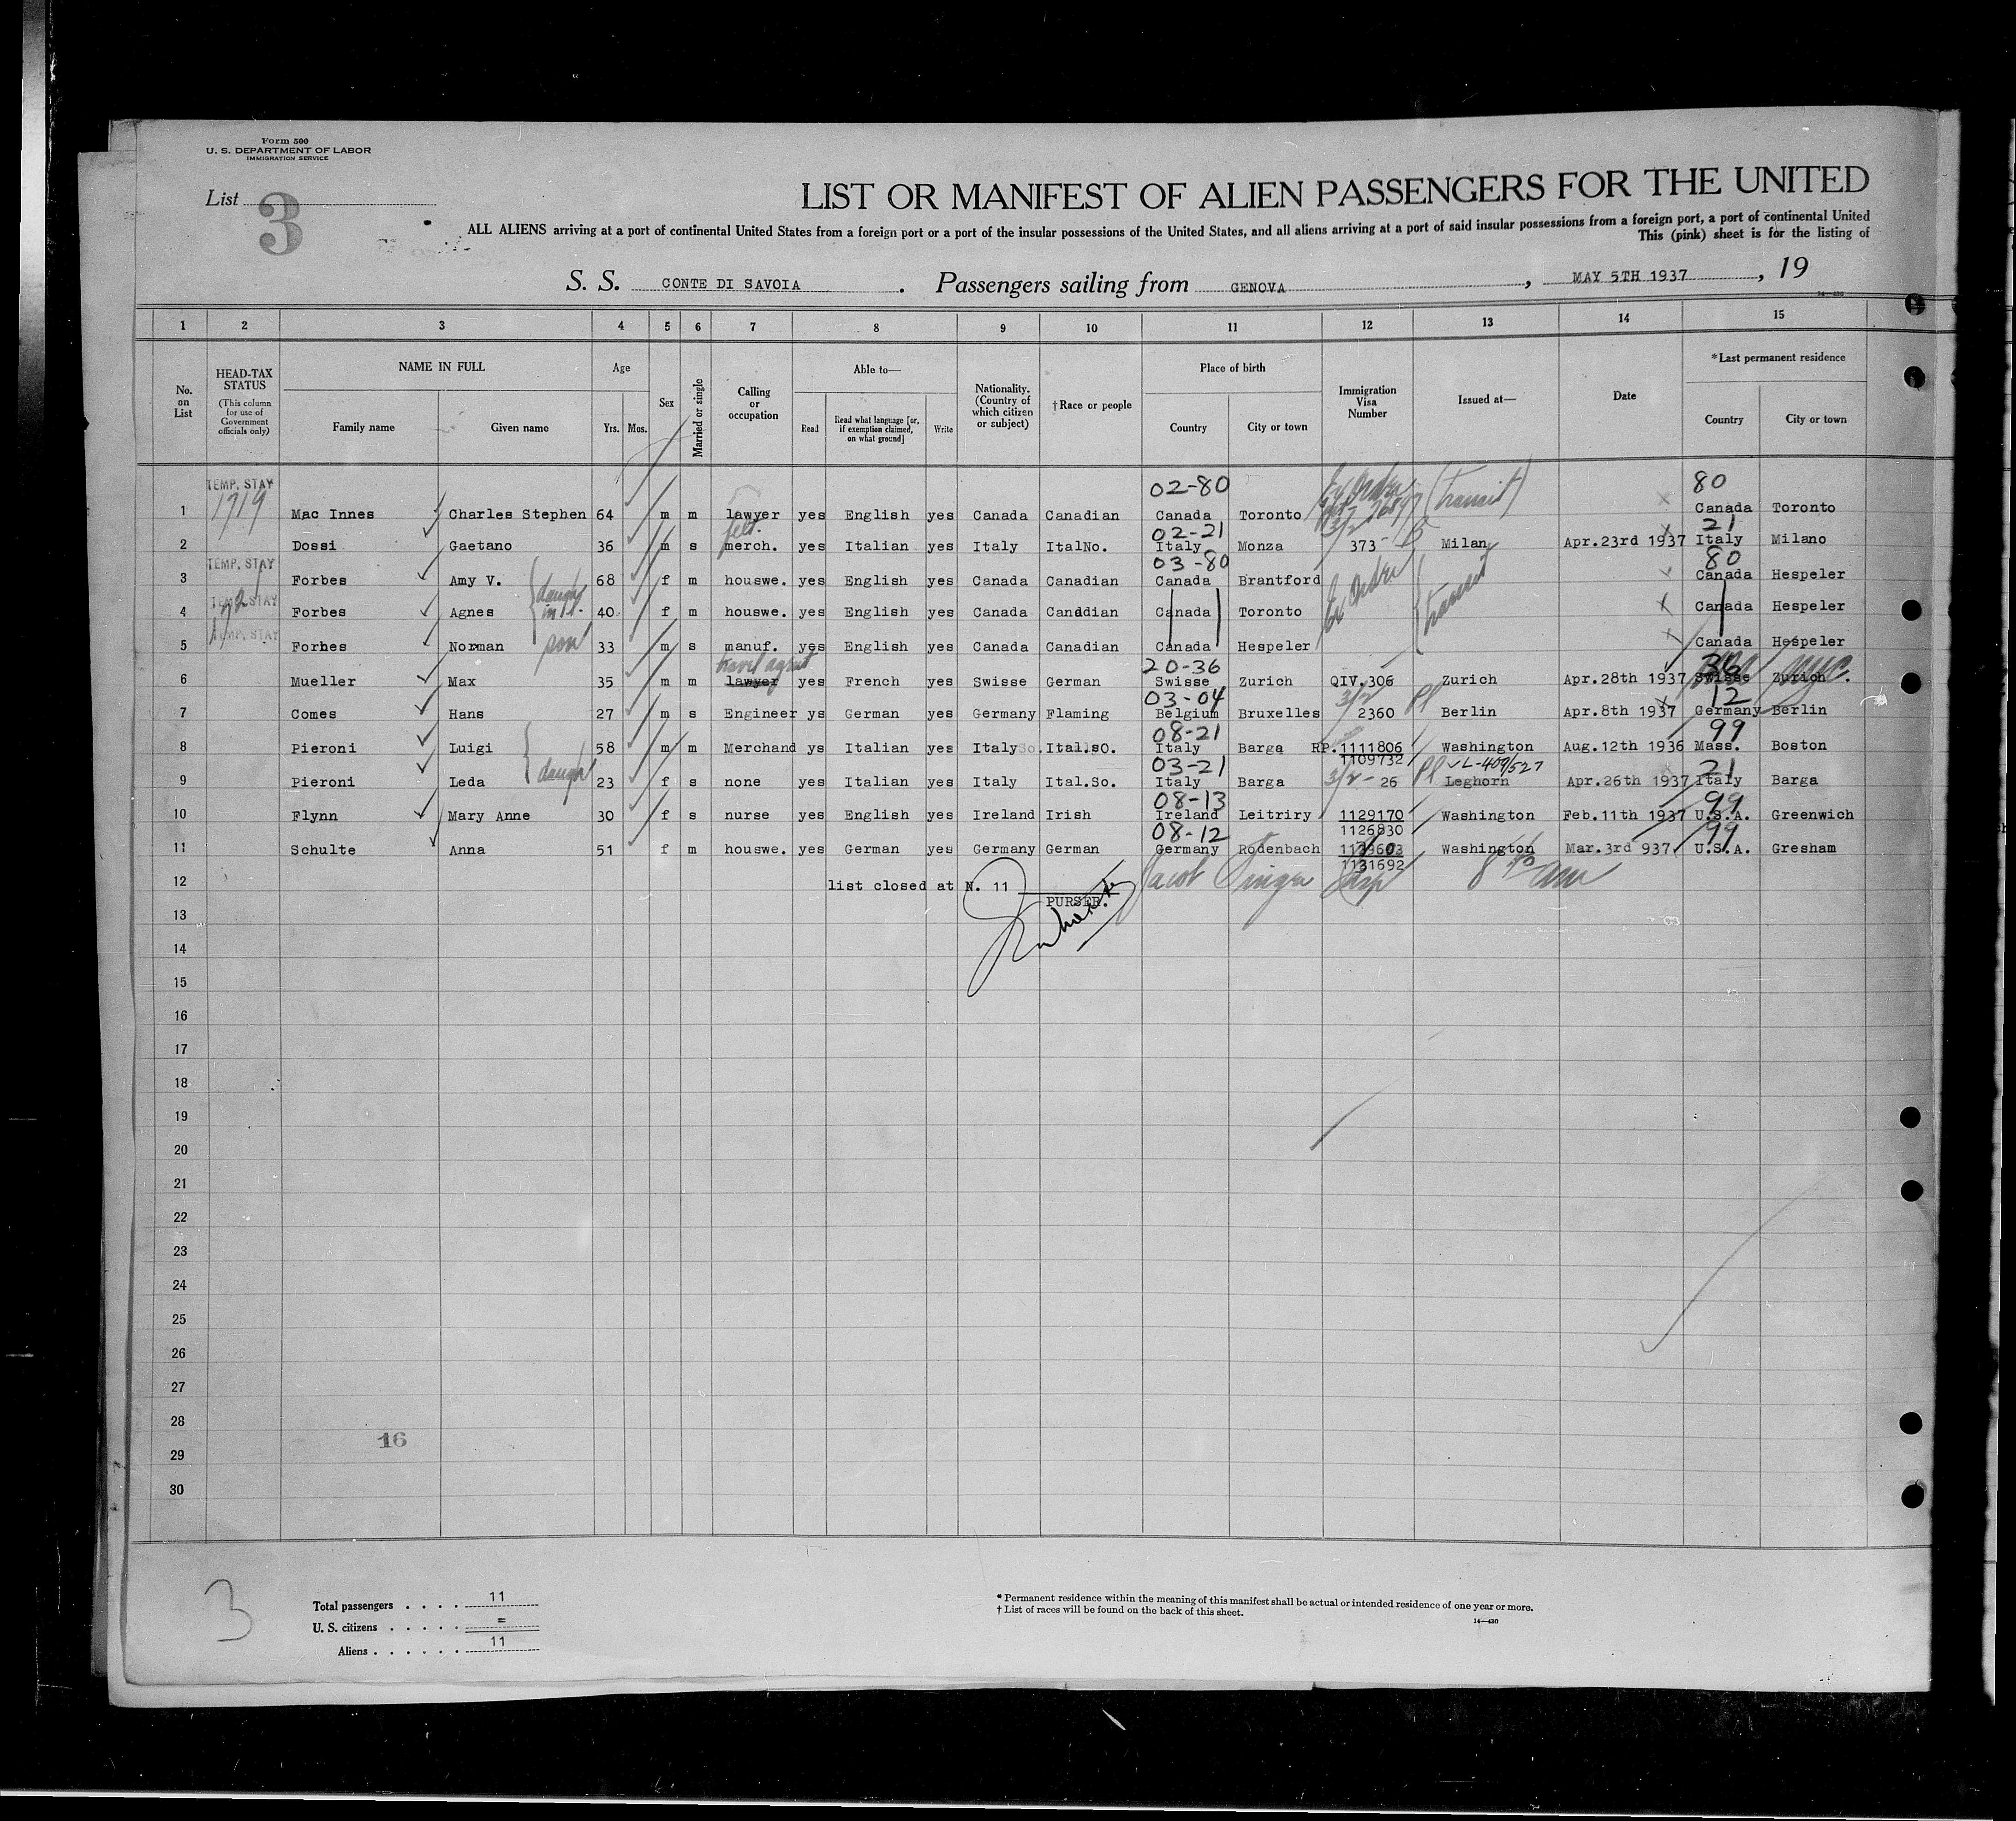 Form 500
U. S. DEPARTMENT OF LABOR
IMMIGRATION SERVICE
List 3
LIST OR MANIFEST OF ALIEN PASSENGERS FOR THE UNITED
ALL ALIENS arriving at a port of continental United States from a foreign port or a port of the insular possessions of the United States, and all aliens arriving at a port of said insular possessions from a foreign port, a port of continental United
This (pink) sheet is for the listing of
S. S. CONTE DI SAVOIA . Passengers sailing from GENOVA , MAY 5TH 1937 , 19
14—430
1 2 3 4 5 6 7 8 9 10 11 12 13 14 15
No. on List
HEAD-TAX STATUS (This column for use of Government officials only)
NAME IN FULL
Family name Given name
Age
Yrs. Mos.
Sex
Married or single
Calling or occupation
Able to—
Read Read what language [or, if exemption claimed, on what ground] Write
Nationality. (Country of which citizen or subject)
†Race or people
Place of birth
Country City or town
Immigration Visa Number
Issued at—
Date
*Last permanent residence
Country City or town
TEMP. STAY 02-80 (transit) 80
1 1719 Mac Innes Charles Stephen 64 m m lawyer yes English yes Canada Canadian Canada Toronto Canada Toronto
02-21 21
2 Dossi Gaetano 36 m s merch. yes Italian yes Italy ItalNo. Italy Monza 373 Milan Apr.23rd 1937 Italy Milano
TEMP. STAY 03-80 80
3 Forbes Amy V. 68 f m houswe. yes English yes Canada Canadian Canada Brantford Ex Order transit Canada Hespeler
TEMP. STAY daugh in l.
4 Forbes Agnes 40 f m houswe. yes English yes Canada Canddian Canada Toronto Canada Hespeler
TEMP. STAY
5 Forbes Norman son 33 m s manuf. yes English yes Canada Canadian Canada Hespeler Canada Hespeler
travel agent 20-36 36
6 Mueller Max 35 m m lawyer yes French yes Swisse German Swisse Zurich QIV.306 Zurich Apr.28th 1937 Swisse Zurich . nyc.
03-04 3/2 Pl 12
7 Comes Hans 27 m s Engineer ys German yes Germany Flaming Belgium Bruxelles 2360 Berlin Apr.8th 1937 Germany Berlin
08-21 99
8 Pieroni Luigi 58 m m Merchand ys Italian yes Italy So. Ital.sO. Italy Barga RP.1111806 Washington Aug.12th 1936 Mass. Boston
daugh 03-21 1109732 L-409/527 21
9 Pieroni Leda 23 f s none yes Italian yes Italy Ital.So. Italy Barga 3/2 - 26 Pl Leghorn Apr.26th 1937 Italy Barga
08-13 99
10 Flynn Mary Anne 30 f s nurse yes English yes Ireland Irish Ireland Leitriry 1129170 Washington Feb.11th 1937 U.S.A. Greenwich
08-12 1126830 99
11 Schulte Anna 51 f m houswe. yes German yes Germany German Germany Rodenbach Washington Mar.3rd 937 U.S.A. Gresham
1131692
12 list closed at N. 11 Jacob Singer Insp 8 40 am
PURSER.
13
14
15
16
17
18
19
20
21
22
23
24
25
26
27
28
16
29
30
3
Total passengers . . . . 11
U. S. citizens . . . . . =
Aliens . . . . . . 11
* Permanent residence within the meaning of this manifest shall be actual or intended residence of one year or more.
† List of races will be found on the back of this sheet.
14—430